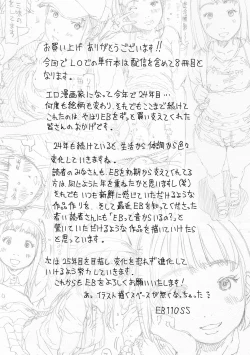 お買い上げ ありがとうございます!!
今回でLOでの単行本は配信を含めて8冊目と
なります。
エロ漫画家になって今年で24年目…
何度も絵柄も変わり、それでもここまで続けて
これたのは、やはりEBをずっと買い支えてくれた
皆さんのおかげです。
24年も続けていると 生活から体調から色々
変化していきますね。
読者のみなさんも、EBを初期から支えてくれてる
方は同じように年を重ねたかと思いますし(笑)
それでもいつも新鮮に感じていただけるような
作品作りを、そして最近EBを知ってくださった
若い読者さんにも「EBって昔からいるの?」と
驚いていただけるような作品を描いていけたら
と思っています。
次は25年目を目指し変化を恐れず進化して
いけるよう努力していきます。
これからもEBをよろしくお願いいたします!
あ。イラスト描くスペースが無くなっちゃった
EB110SS